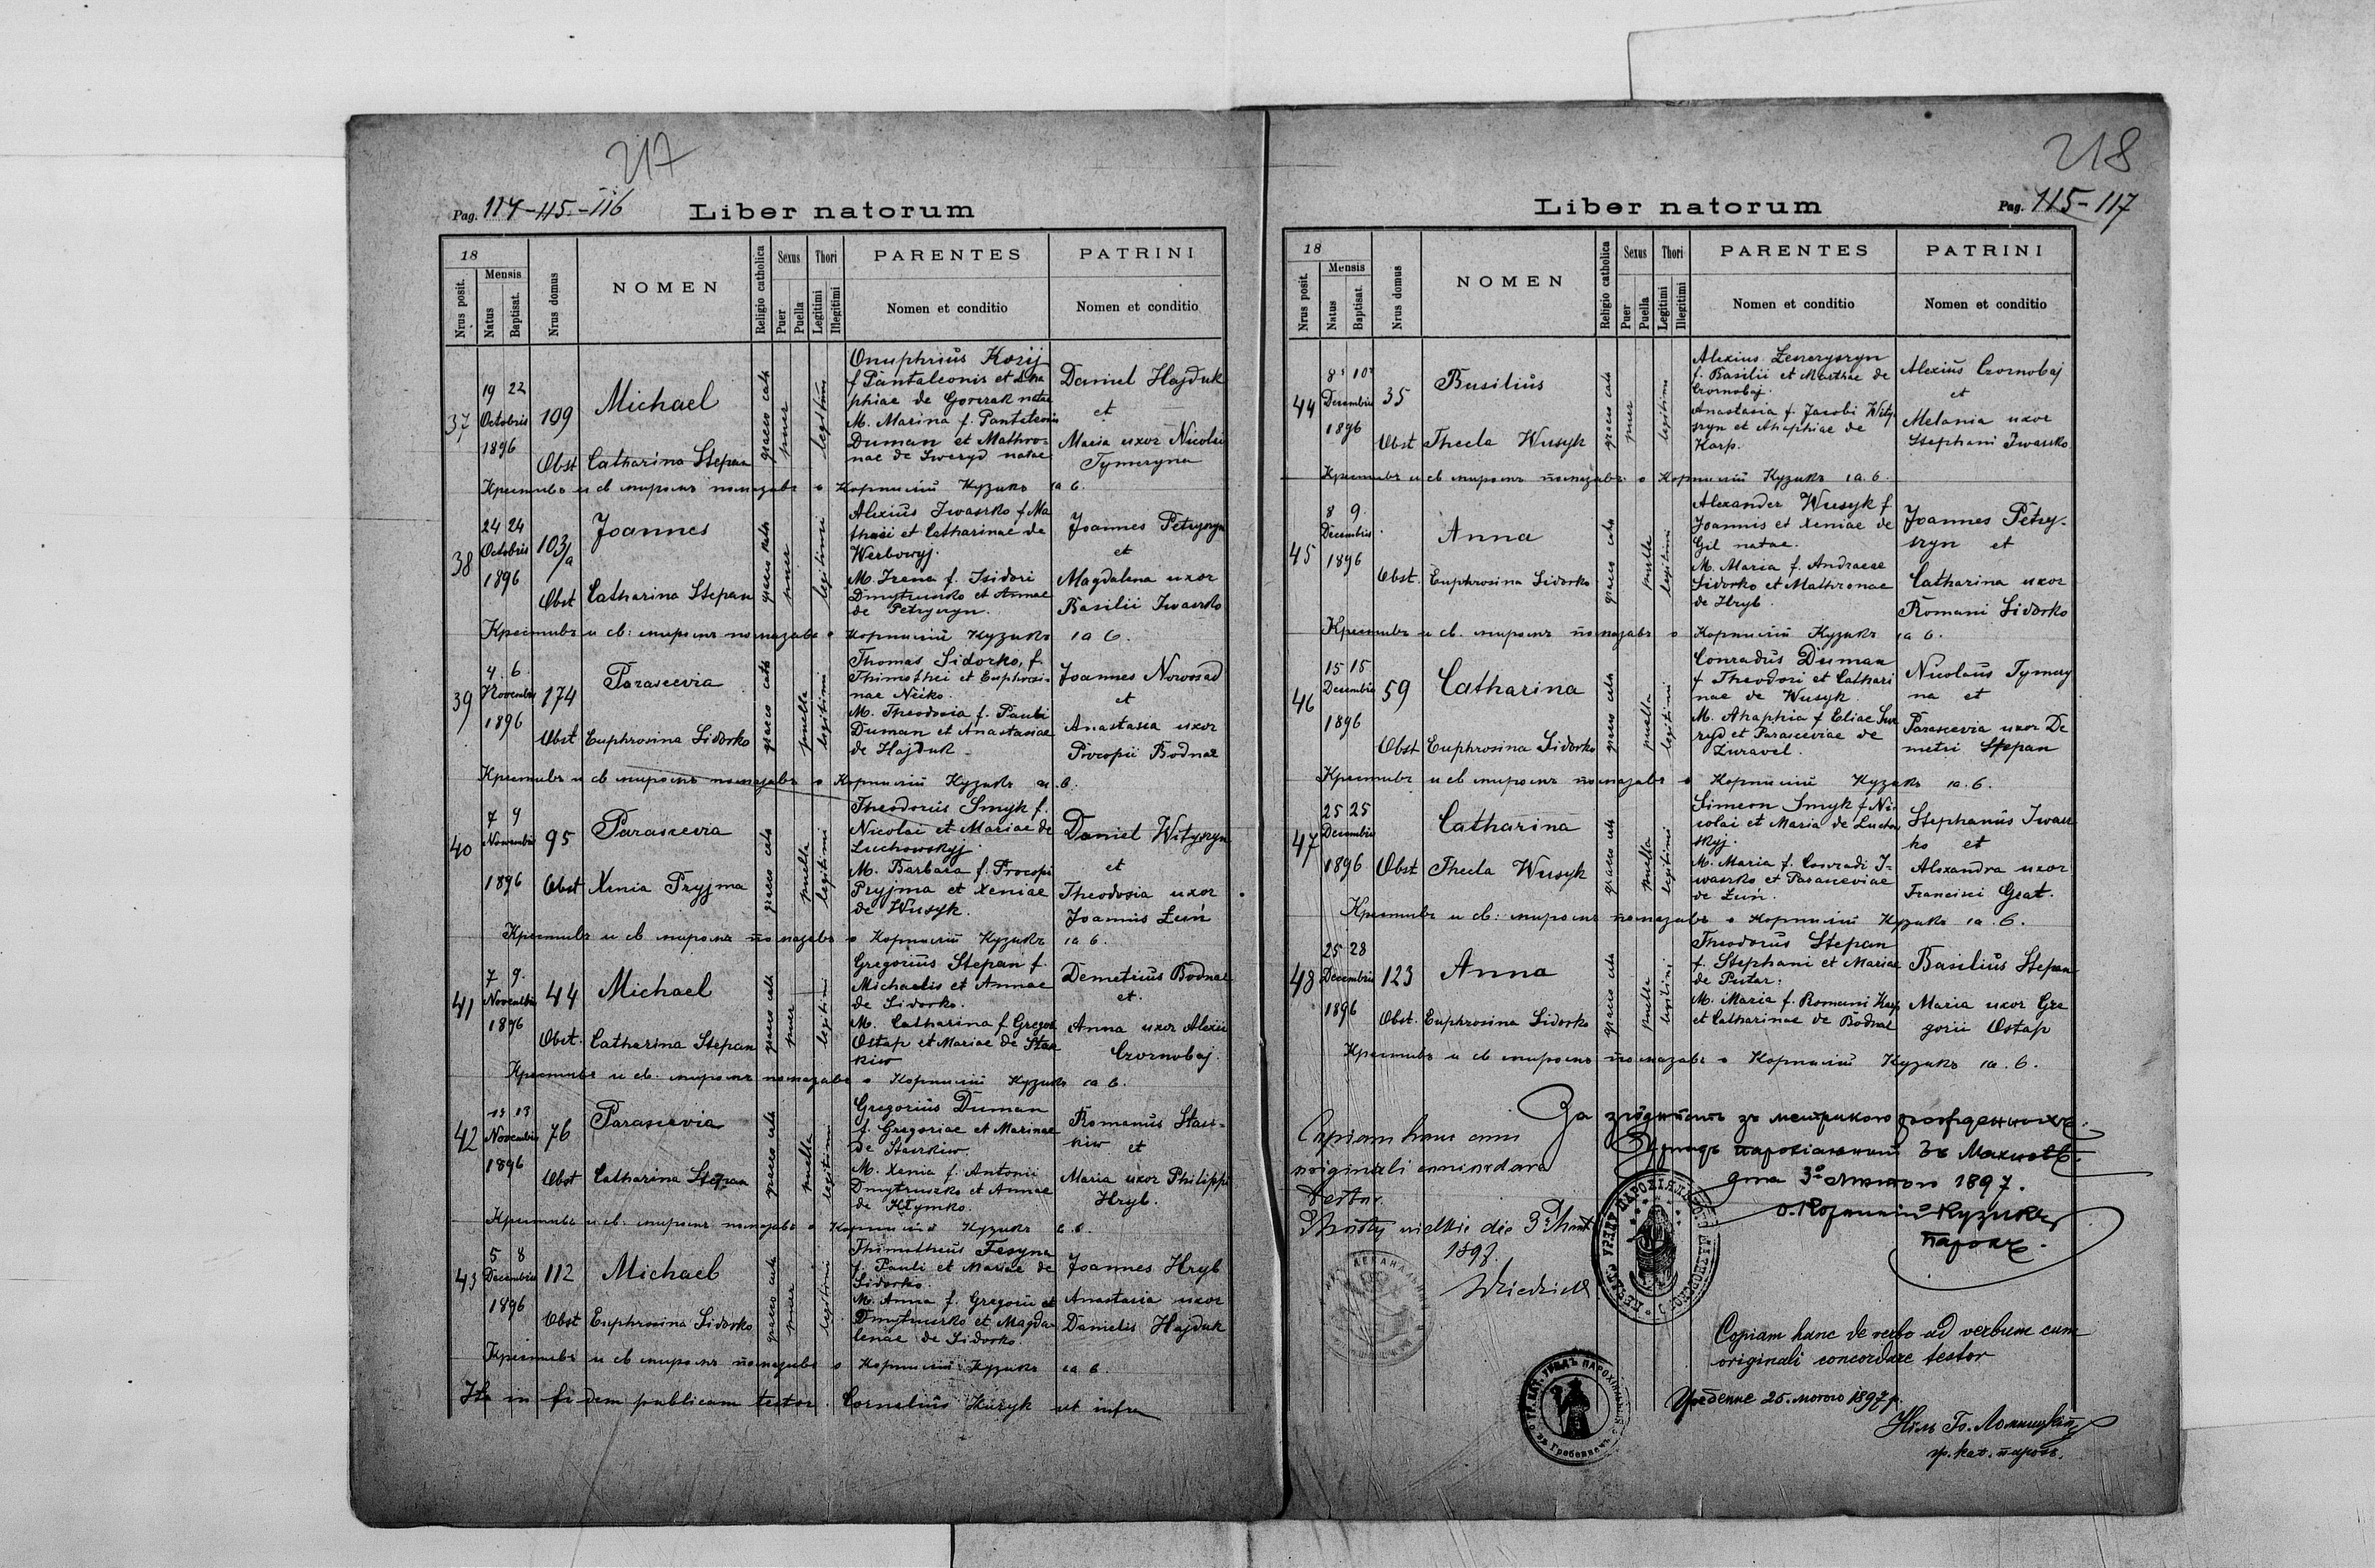 217
Pag. 114-115-116
Liber natorum
18
Nrus posit.
Mensis
Natus
Baptisat.
Nrus domus
NOMEN
Religio catholica
Sexus
Puer
Puella
Thori
Legitimi
Illegitimi
PARENTES
Nomen et conditio
PATRINI
Nomen et conditio
37
19 22
Octobris
1896
109
Michael
Obst Catharina Stepan
graeco cath
puer
Onuphrius Kozij
f Pantaleonis et Aha
phiae de Gorczak natae
M. Marina f. Pantaleonis
Duman et Mathro-
nae de Sweryd natae
Daniel Hajduk
et
Maria uxor Nicolai
Tymeryna
Крестивъ и св миромъ помазавъ о Корнилій Кузикъ
38
24 24
Octobris
1896
103/a
Joannes
Obst Catharina Stepan
graeco cath
puer
legitimi
Alexius Iwaszko f Ma
thaei et Catharinae de
Werbowyj.
M. Irena f. Isidori
Dmytruszko et Annae
de Petryszyn.
Joannes Petryszyn
et
Magdalena uxor
Basilii Iwaszko
Крестивъ и св. миромъ помазавъ о Корнилій Кузикъ
39
4. 6.
Novembris
1896
174
Parascevia
Obst Euphrosina Sidorko
graeco cath
puella
legitimi
Thomas Sidorko, f.
Thimothei et Euphrosi-
nae Neiko.
M. Theodosia f. Pauli
Duman et Anastasiae
de Hajduk
Joannes Nowosad
et
Anastasia uxor
Procopii Bodnar
Крестивъ и св миромъ помазавъ о Корнилій Кузикъ
40
7 9
Novembris
1896
95
Parascevia
Obst Xenia Pryjma
graeco cath
puella
legitimi
Theodorus Smyk f.
Nicolai et Mariae de
Luchowskyj.
M. Barbara f. Procopi
Pryjma et Xeniae
de Wusyk.
Daniel Wityszyn
et
Theodosia uxor
Joannis Łuń
Крестивъ и св миромъ помазавъ о Корнилій Кузикъ
41
7 9.
Novembris
1896
44
Michael
Obst. Catharina Stepan
graeco cath
puer
legitimi
Gregorius Stepan f.
Michaelis et Annae
de Sidorko.
M. Catharina f. Gregor
Ostap et Mariae de Stas
kiw
Demetrius Bodnar
et
Anna uxor Alexii
Czornobaj.
Крестивъ и св. миромъ помазавъ о Корнилій Кузикъ
42
13 13
Novembris
1896
76
Parascevia
Obst Catharina Stepan
graeco cath
puella
legitimi
Gregorius Duman
f. Gregoriae et Marinae
de Staszkiw.
M. Xenia f. Antonii
Dmytruszko et Annae
de Klymko.
Romanus Stasz-
kiw et
Maria uxor Philippi
Hryb.
Крестивъ и св. миромъ помазавъ о Корнилій Кузикъ
43
5 8
Decembris
1896
112
Michael
Obst Euphrosina Sidorko
graeco cath
puer
legitimi
Thimotheus Fesyna
f. Pauli et Mariae de
Sidorko.
M. Anna f. Gregorii et
Dmytruszko et Magda-
lenae de Sidorko.
Joannes Hryb
Anastasia uxor
Danielis Hajduk
Крестивъ и св миромъ помазавъ о Корнилій Кузикъ
Ita in fidem publicam testor. Cornelius Kuzyk ut infra
218
Liber natorum
Pag. 115-117
18
Nrus posit.
Mensis
Natus
Baptisat.
Nrus domus
NOMEN
Religio catholica
Sexus
Puer
Puella
Thori
Legitimi
Illegitimi
PARENTES
Nomen et conditio
PATRINI
Nomen et conditio
44
8 10
Decembris
1896
35
Basilius
Obst Thecla Wusyk
graeco cath
puer
legitimi
Alexius
f. Basilii et Marthae de
Czornobaj.
Anastasia f. Jacobi Wity-
szyn et Ahaphiae de
Karp.
Alexius Czornobaj
et
Melania uxor
Stephani Iwaszko
Крестивъ и св миромъ помазавъ о Корнилій Кузикъ
45
8 9.
Decembris
1896
Anna
Obst. Euphrosina Sidorko
graeco cath
puella
legitimi
Alexander Wusyk f
Joannis et Xeniae de
Gil natae.
M. Maria f. Andraeae
Sidorko et Mathronae
de Hryb.
Joannes Petry-
szyn et
Catharina uxor
Romani Sidorko
Крестивъ и св. миромъ помазавъ о Корнилій Кузикъ
46
15 15
Decembris
1896
59
Catharina
Obst Euphrosina Sidorko
graeco cath
puella
legitimi
Conradus Duman
f Theodori et Cathari
nae de Wusyk
M. Ahaphia f Eliae Swe
ryd et Parasceviae de
Żuravel.
Nicolaus Tymery
na et
Parascevia uxor De
metri Stepan
Крестивъ и св миромъ помазавъ о Корнилій Кузикъ
47
25 25
Decembris
1896
Catharina
Obst Thecla Wusyk
graeco cath
puella
legitimi
Simeon Smyk f Ni-
colai et Maria de Luchow
skyj.
M. Maria f. Conradi I-
waszko et Parasceviae
de Łuń.
Stephanus Iwasz
ko et
Alexandra uxor
Francisci Grat.
Крестивъ и св. миромъ помазавъ о Корнилій Кузикъ
48
25 28
Decembris
1896
123
Anna
Obst. Euphrosina Sidorko
graeco cath
puella
legitimi
Theodorus Stepan
f. Stephani et Mariae
de Putar.
M. Maria f. Romani Karp
et Catharinae de Bodnar
Basilius Stepan
Maria uxor Gre
gorii Ostap
Крестивъ и св миромъ помазавъ о Корнилій Кузикъ
За згôдность зъ метрикою рожденныхъ.
Урядъ парохіяльный въ Махновѣ
дня 3о лютого 1897.
о. Корнилій Кузикъ
парохъ.
Copiam hanc cum
originali concordare
testor.
1897.
Copiam hanc de verbo ad verbum cum
originali concordare testor
Гребенне 26. лютого 1897 р.
гр. кат. парохъ.